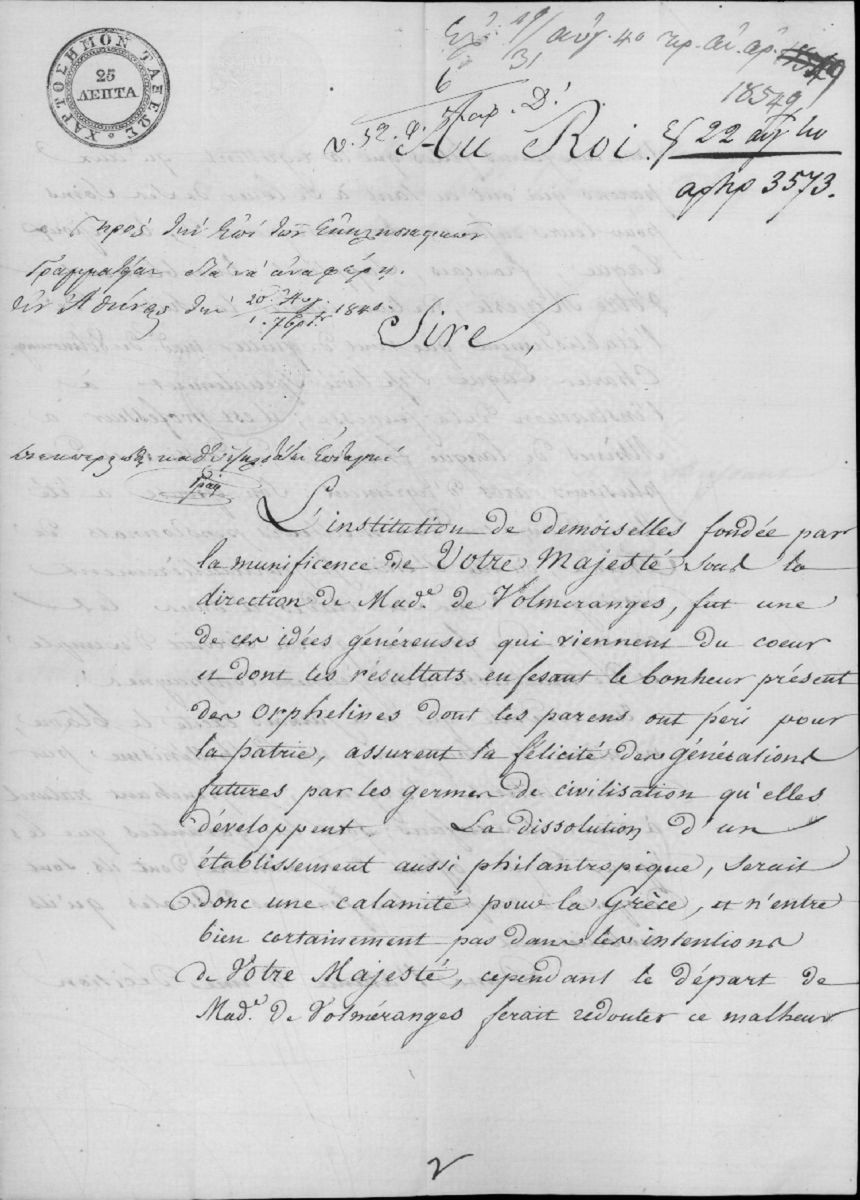 ΧΑΡΤΟΣΗΜΟΝ ΤΑΞΕΩΣ
25
ΛΕΠΤΑ
19/31 αὐγ. 40
18549
Au Roi.
22 αυγ 40
αριθ 3573.
Πρὸς τὴν ἐπὶ τῶν Ἐκκλησιαστικῶν
Γραμματείαν διὰ νὰ ἀναφέρῃ.
ἐν Ἀθήναις τὴν 20 Αυγ. / 1 7βρίου 1840
Sire,
L'institution de demoiselles fondée par
la munificence de Votre Majesté sous la
direction de Mad.e de Volmeranges, fut une
de ces idées généreuses qui viennent du coeur
et dont les résultats en fesant le bonheur présent
des Orphelines dont les parens ont peri pour
la patrie, assurent la félicité des générations
futures par les germes de civilisation qu'elles
développent. La dissolution d'un
établissement aussi philantropique, serait
donc une calamité pour la Grèce, et n'entre
bien certainement pas dans les intentions
de Votre Majesté, cependant le départ de
Mad.e de Volméranges ferait redouter ce malheur